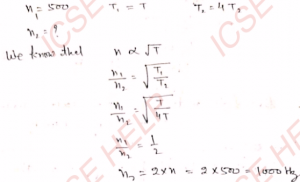 n₁ = 500 T₁ = T T₂ = 4T₁
n₂ = ?
We know that n ∝ √T
n₁/n₂ = √(T₁/T₂)
n₁/n₂ = √(T/4T)
n₁/n₂ = 1/2
n₂ = 2×n = 2×500 = 1000 Hz
ICSE HELP
ICSE HELP
ICSE HELP